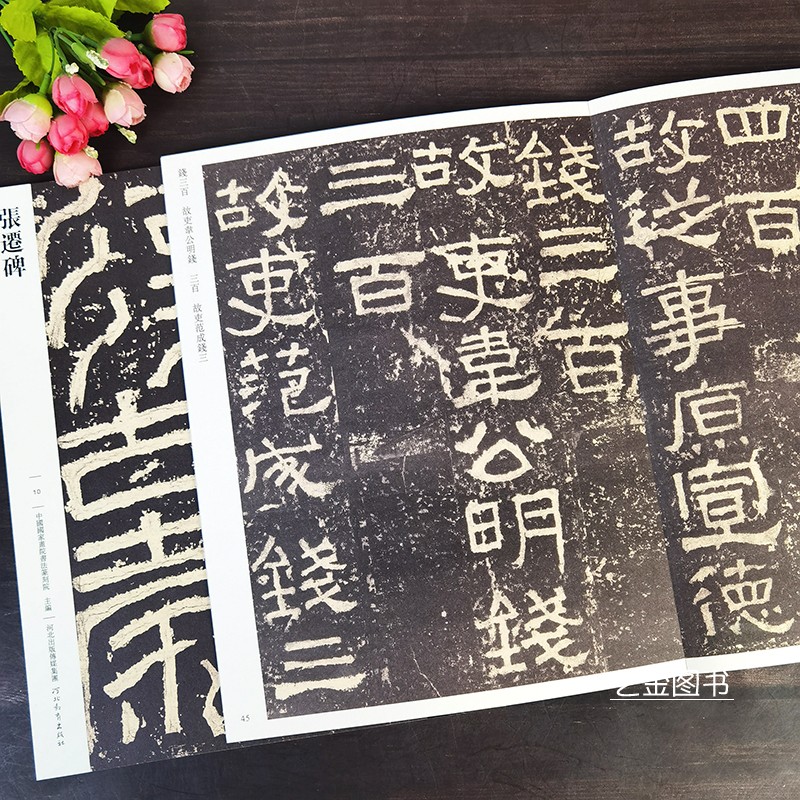 四百
故從事原宣德
錢三百
故吏韋公明錢
三百
故吏范成錢三
錢三百 故吏韋公明錢 三百 故吏范成錢三
45
張遷碑
10
中國國家畫院書法篆刻院 主編
河北出版傳媒集團
河北教育出版社
艺金图书